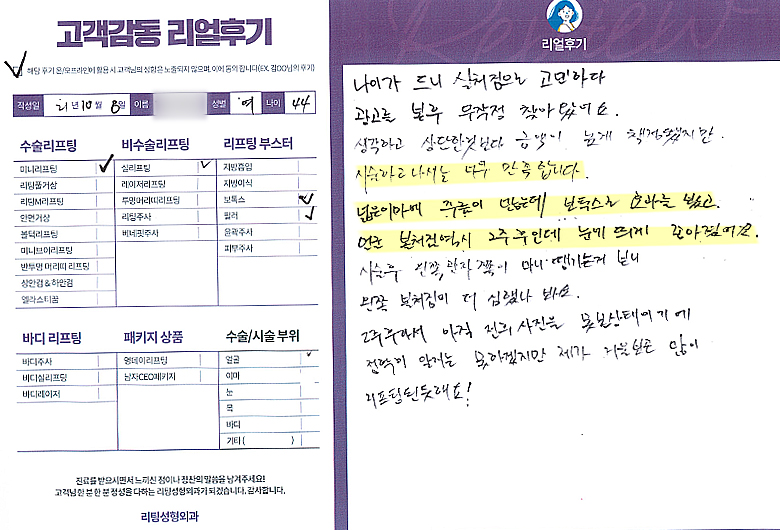 고객감동 리얼후기
해당 후기 온/오프라인에 활용 시 고객님의 성함은 노출되지 않으며, 이에 동의 합니다(EX. 김OO님의 후기)
작성일 21년 10월 8일 이름 성별 여 나이 44
수술리프팅
미니리프팅
리팅풀거상
리팅M리프팅
안면거상
볼턱리프팅
미니브이리프팅
반투명 머리띠 리프팅
상안검 & 하안검
엘라스티꿈
비수술리프팅
실리프팅
레이저리프팅
투명머리띠리프팅
리팅주사
비네핏주사
리프팅 부스터
지방흡입
지방이식
보톡스
필러
윤곽주사
피부주사
바디 리프팅
바디주사
바디실리프팅
바디레이저
패키지 상품
명데이리프팅
남자CEO패키지
수술/시술 부위
얼굴
이마
눈
목
바디
기타 ( )
진료를 받으시면서 느끼신 점이나 정찬의 말씀을 남겨주세요!
고객님 한 분 한 분 정성을 다하는 리팅성형외과가 되겠습니다. 감사합니다.
리팅성형외과
리얼후기
나이가 드니 실처짐으로 고민하다
광고를 본후 무작정 찾아왔어요.
생각하고 상담한것보다 금액이 높게 책정됐지만
시술하고 나서는 너무 만족합니다.
넓은이마에 주름이 많은데 보톡스로 효과를 봤고
언굴 볼처짐역시 2주후인데 눈에 띄게 좋아짐여요.
시술후 왼쪽 관자 쪽이 마니 땡기는거 보니
왼쪽 볼처짐이 더 심했나 봐요.
2주후라서 아직 전후사진을 못본상태이기에
정확히 알지는 못하겠지만 제가 거울보는 많이
리프팅된듯해요!